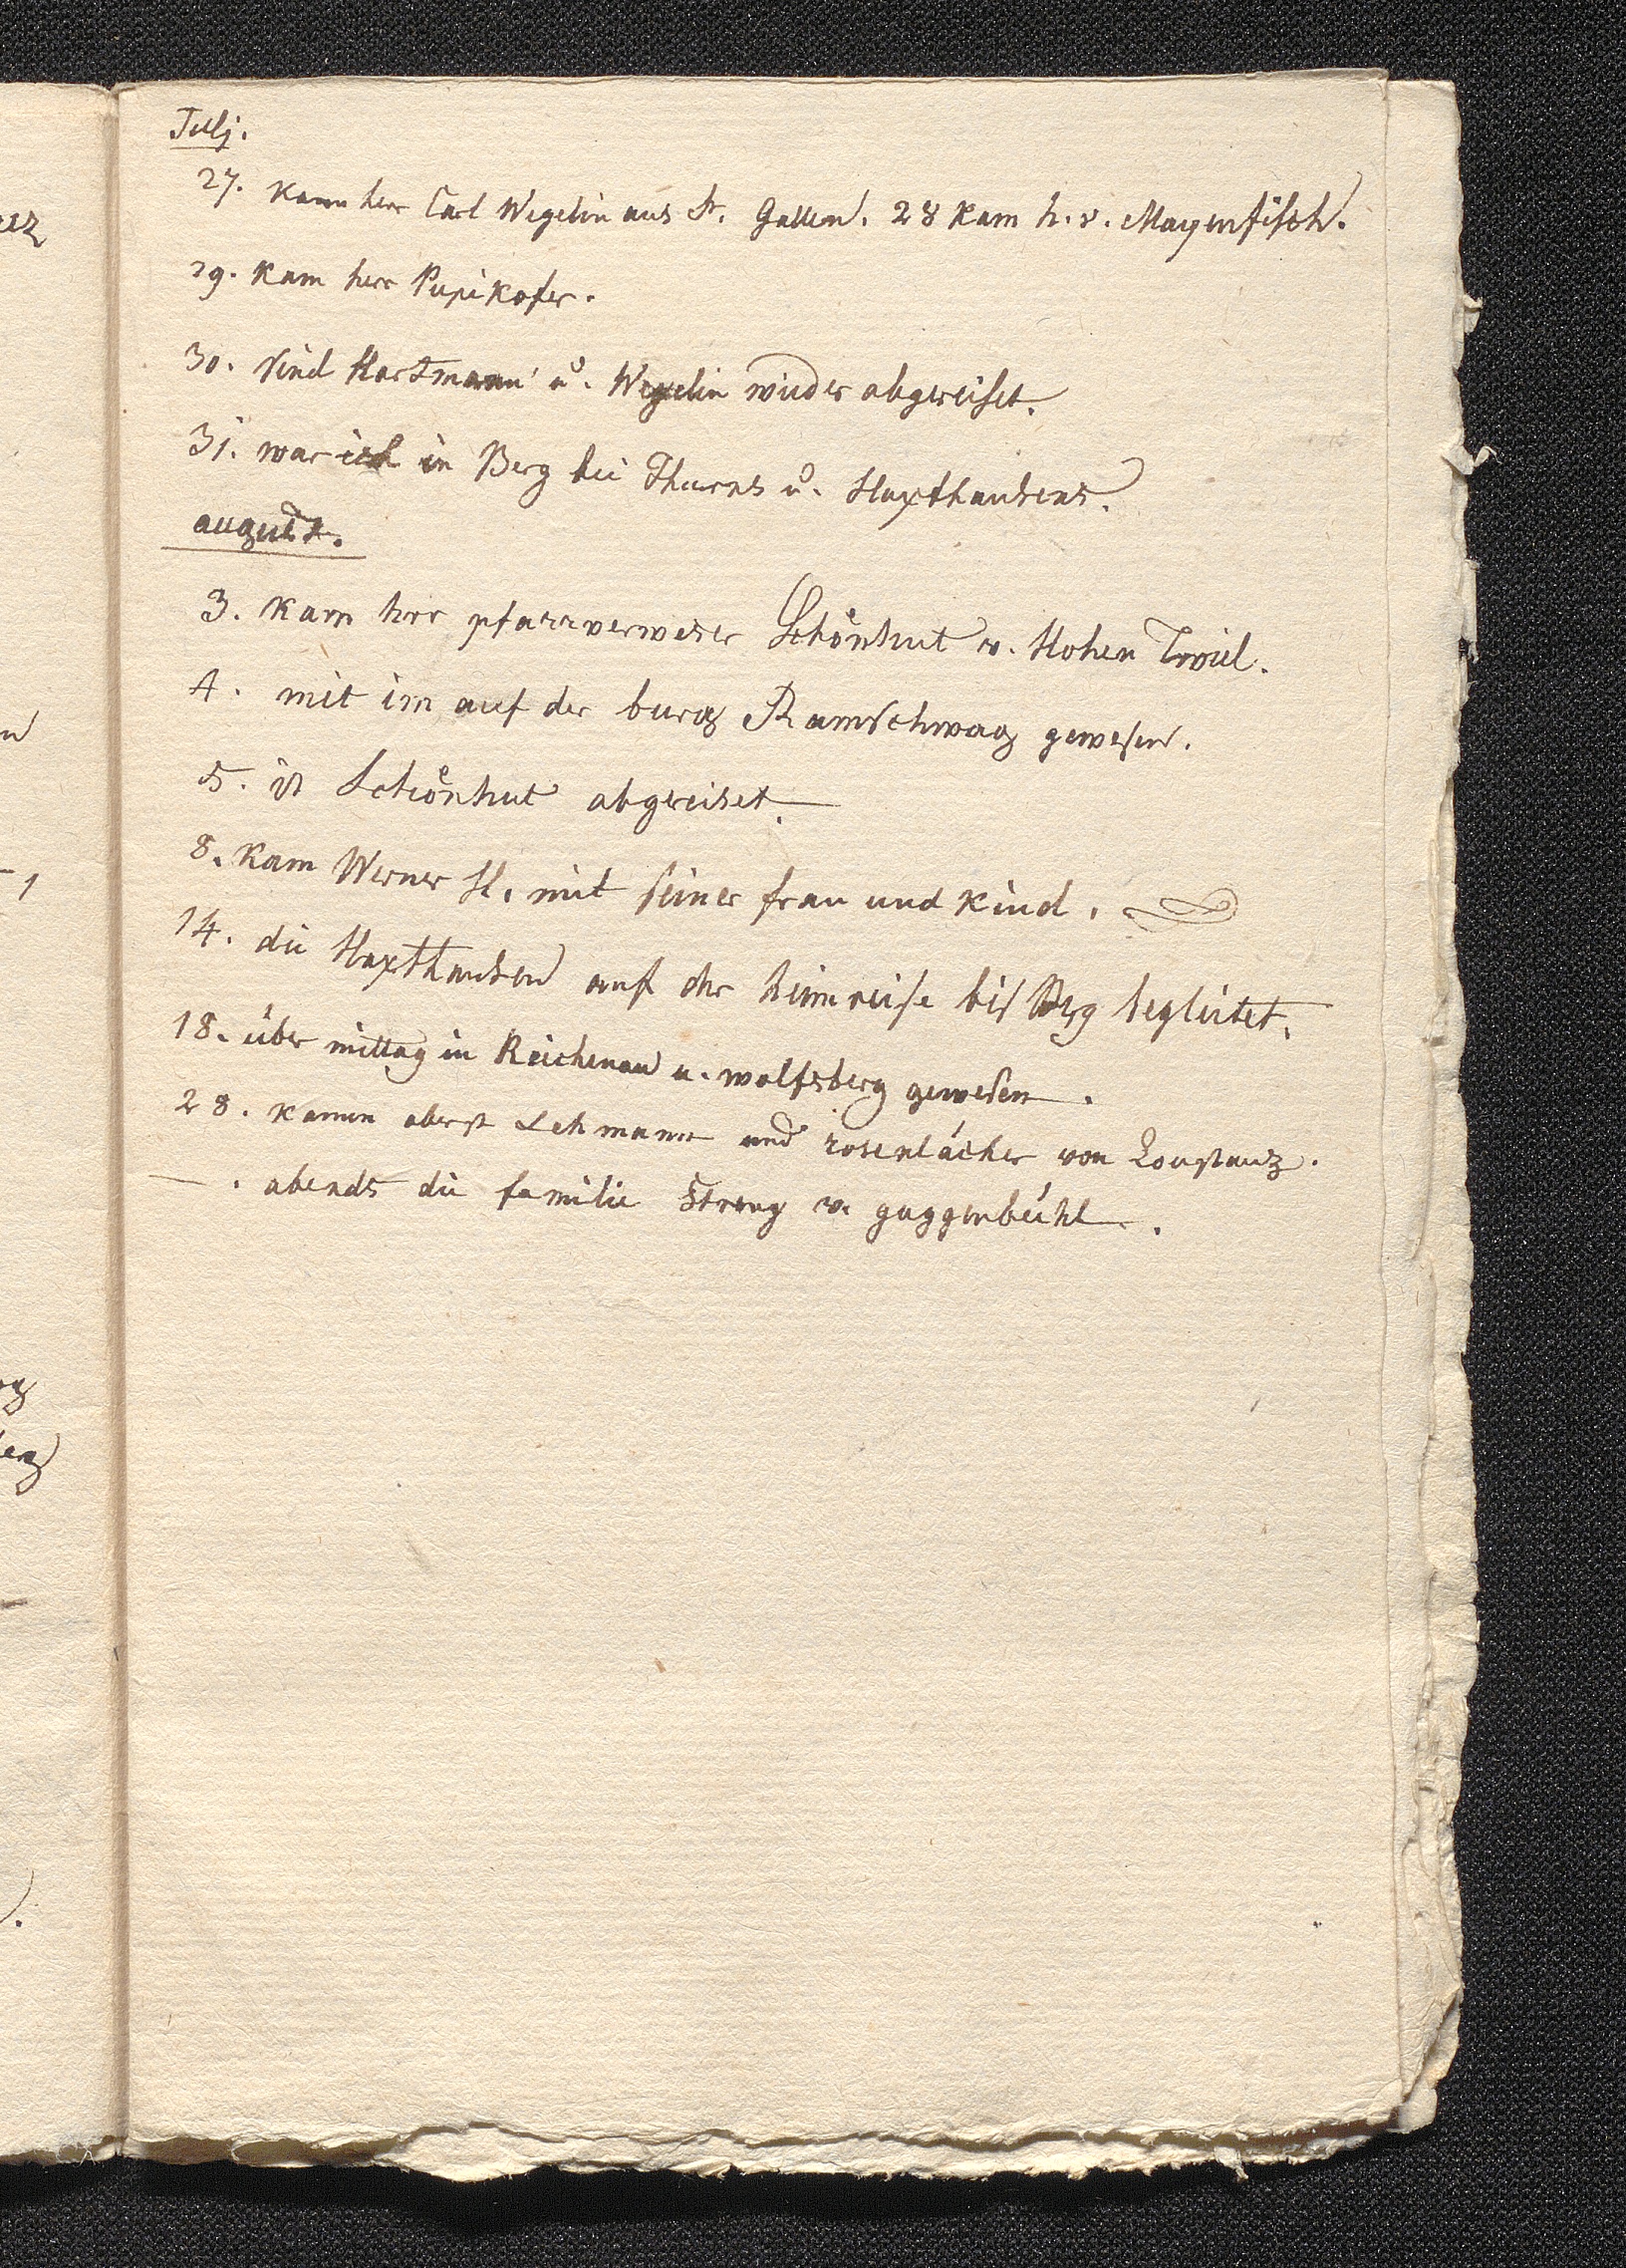 Julj.
27. Kam herr Carl Wegelin aus St. Gallen. 28 Kam h. v. Mayenfisch.
29. Kam herr Pupikofer.
30. sind Hartmann u. Wegelin wieder abgereiset.
31. war ich in Berg bei Thurns u. Haxthausens.
august.
3. Kam herr pfarrverweser Schönhut v. Hohen Twiel.
4. mit im auf der burg Ramschwag gewesen.
5. ist Schönhut abgereiset.
8. Kam Werner H. mit seiner frau und Kind.
14. die Haxthausen auf der heimreise bis Berg begleitet.
18. über mittag in Reichenau u. wolfsberg gewesen.
28. kamen oberst Lehmann und rosenlächer von Constanz.
—. abends die familie Streng v. guggenbühl.